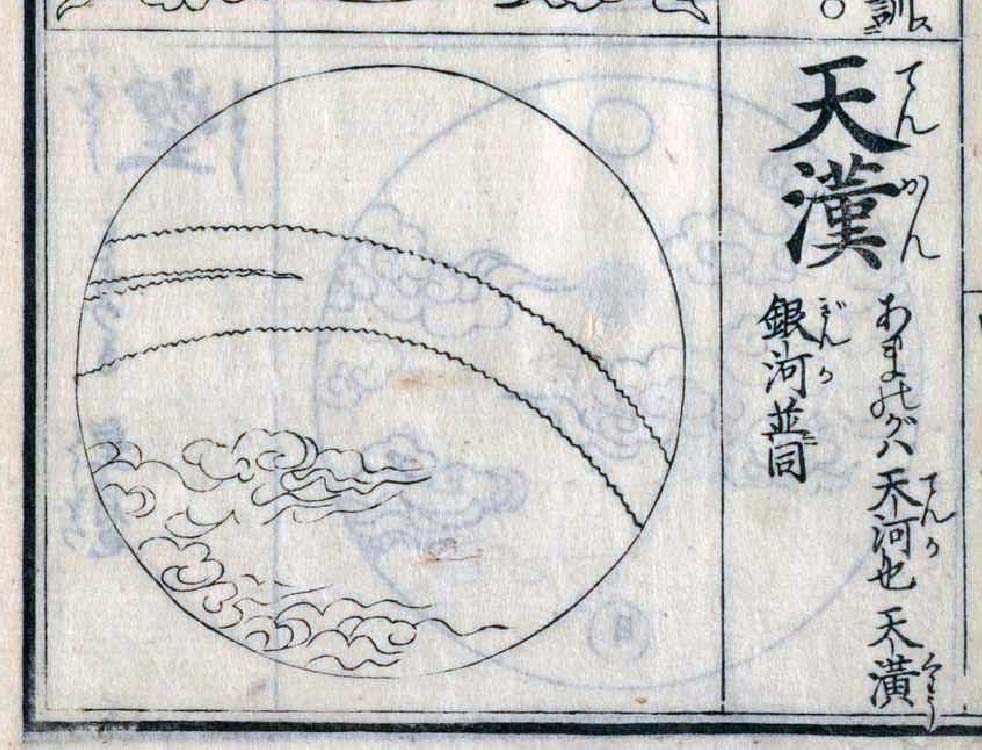 訓ス
○
天漢
てんかん
あまのがハ天河也天潢
てんか
くわう
銀河並ニ同
ぎんか